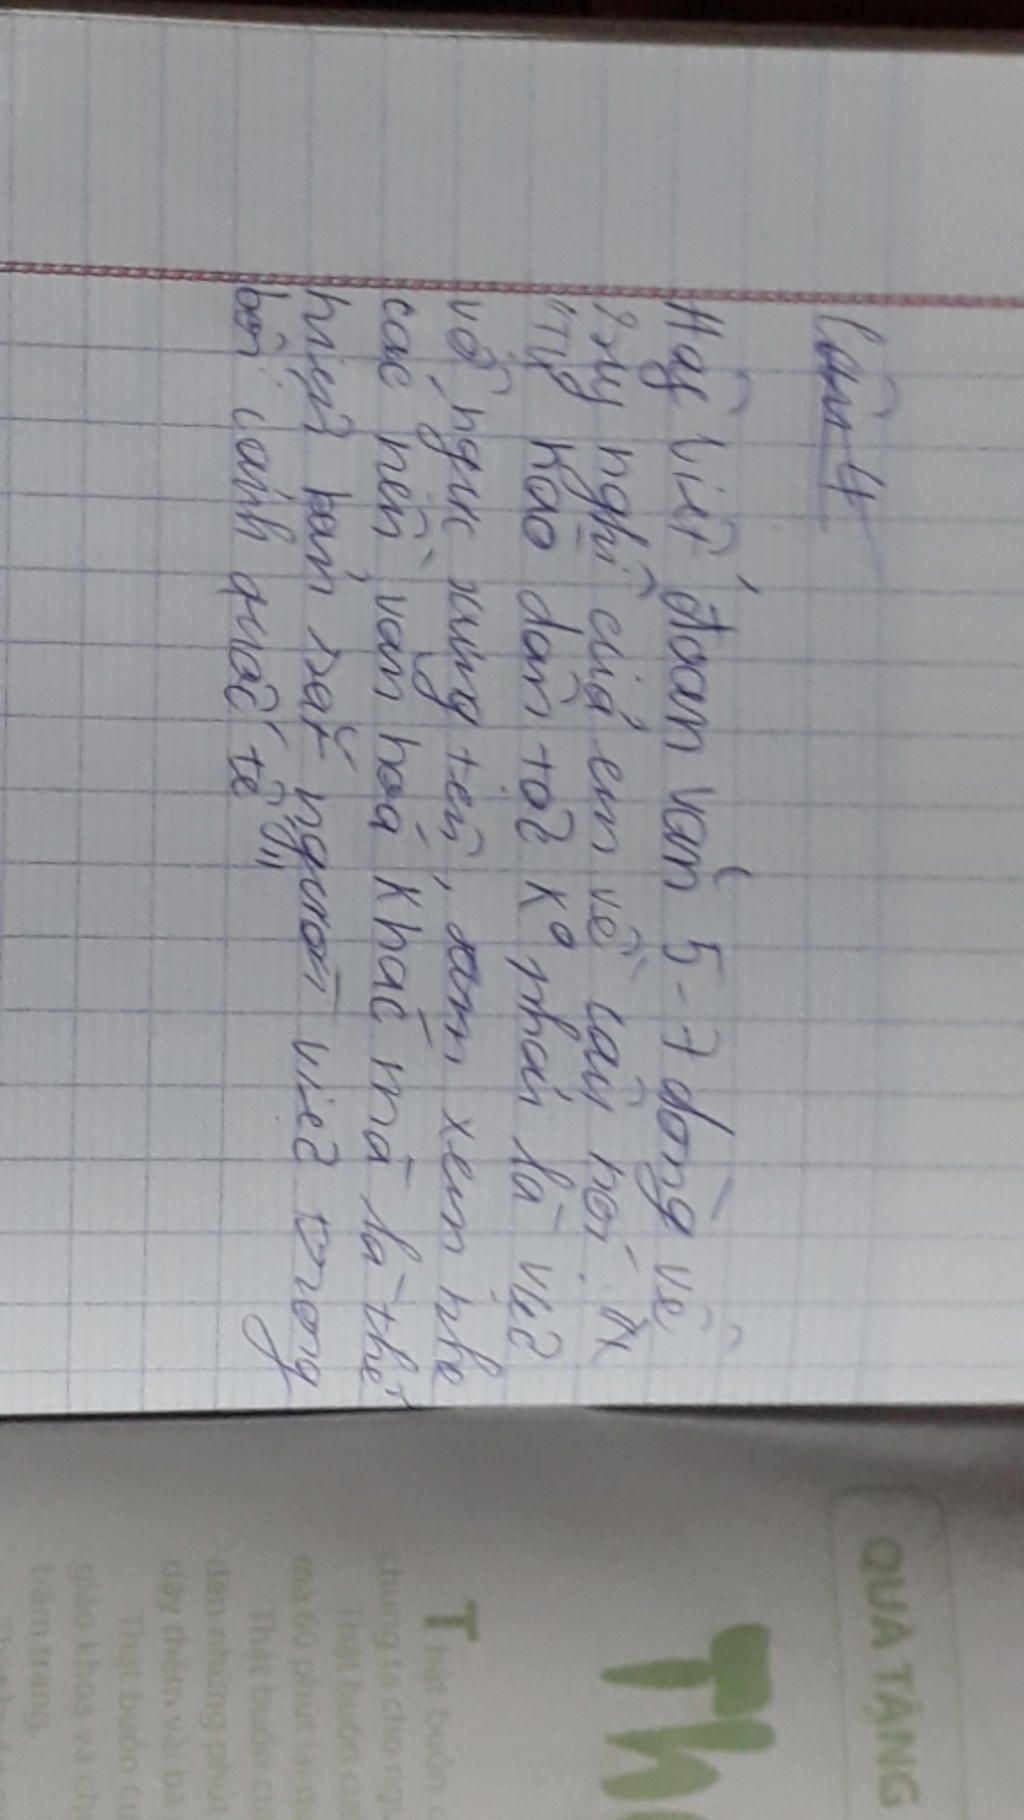 Câu 4
Hãy viết đoạn văn 5-7 dòng về
suy nghĩ của em về câu nói:
"Tự hào dân tộc ko phải là việc
vỗ ngực xưng tên, xem nhẹ
các nền văn hoá khác mà là thể
hiện bản sắc người việt trong
bối cảnh quốc tế"
QUÀ TẶNG
Thật buồn
chúng ta cho
Thật buồn
mà 60 phút lại
Thật buồn
đến những phút
dây thêm vài ba
Thật buồn
giáo khoa và
trăm trang.